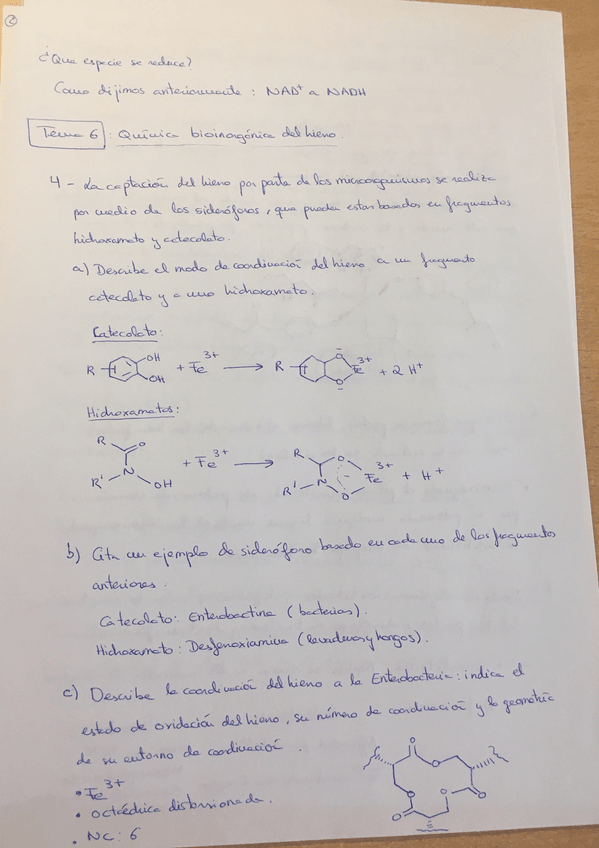 ②
¿Que especie se reduce?
Como dijimos anteriormente : NAD⁺ a NADH
Tema 6 : Química bioinorgánica del hierro.
4 - La captación del hierro por parte de los microorganismos se realiza
por medio de los sideróforos, que pueden estar basados en fragmentos
hidroxamato y catecolato.
a) Describe el modo de coordinación del hierro a un fragmento
catecolato y a uno hidroxamato.
Catecolato:
R OH OH + Fe³⁺ → R O⁻ O⁻ Fe³⁺ + 2 H⁺
Hidroxamatos:
R O R' N OH + Fe³⁺ → R O R' N O - Fe³⁺ + H⁺
b) Cita un ejemplo de sideróforo basado en cada uno de los fragmentos
anteriores.
Catecolato: Enterobactina (bacterias).
Hidroxamato: Desferroxiamina (levaduras y hongos).
c) Describe la coordinación del hierro a la Enterobacteria: indica el
estado de oxidación del hierro, su número de coordinación y la geometría
de su entorno de coordinación.
• Fe³⁺
• octaédrica distorsionada.
• NC: 6
O O O O O O